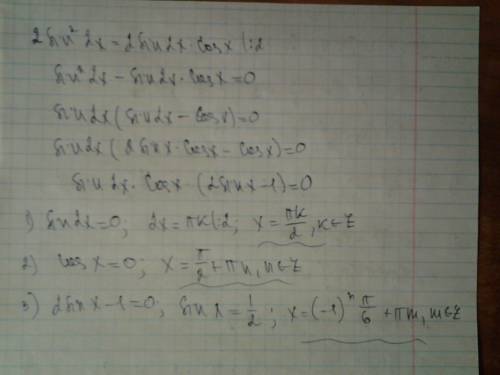 2 sin² 2x = 2 sin 2x · cos x |:2
sin² 2x - sin 2x · cos x = 0
sin 2x (sin 2x - cos x) = 0
sin 2x (2 sin x · cos x - cos x) = 0
sin 2x · cos x · (2 sin x - 1) = 0
1) sin 2x = 0; 2x = πk |:2; x = πk/2, k ∈ Z
2) cos x = 0; x = π/2 + πn, n ∈ Z
3) 2 sin x - 1 = 0; sin x = 1/2; x = (-1)ⁿ π/6 + πm, m ∈ Z